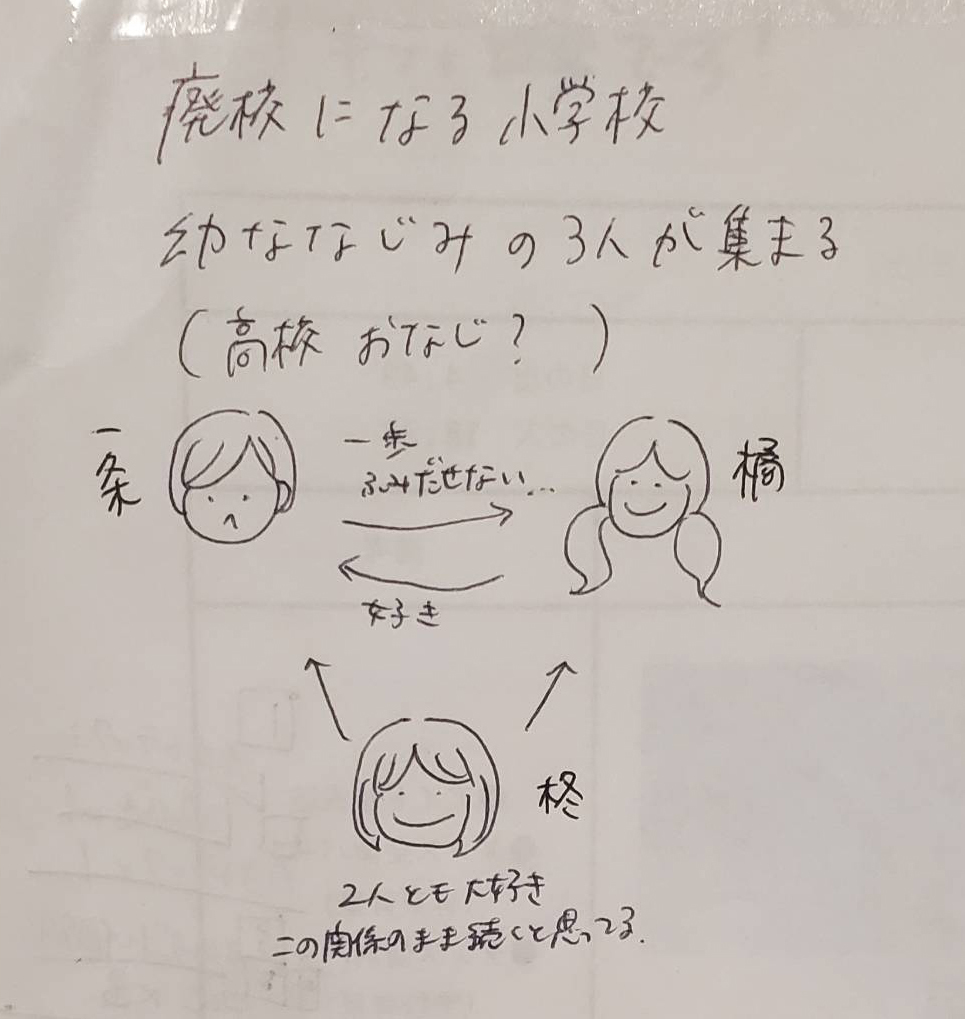 廃校になる小学校
幼ななじみの3人が集まる
(高校 おなじ? )
一条
一歩
ふみだせない...
橘
好き
柊
2人とも大好き
この関係のまま続くと思ってる.